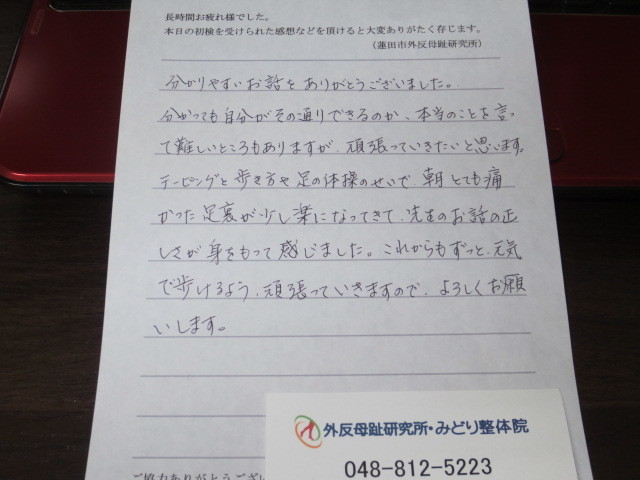 長時間お疲れ様でした。
本日の初検を受けられた感想などを頂けると大変ありがたく存じます。
（蓮田市外反母趾研究所）
分かりやすいお話をありがとうございました。
分かっても自分がその通りできるのか、本当のことを言っ
て難しいところもありますが、頑張っていきたいと思います。
テーピングと歩き方や足の体操のせいで、朝とても痛
かった足裏が少し楽になってきて、先生のお話の正
しさが身をもって感じました。これからもずっと、元気
で歩けるよう、頑張っていきますので、よろしくお願
いします。
外反母趾研究所・みどり整体院
048-812-5223
ご協力ありがとうござい